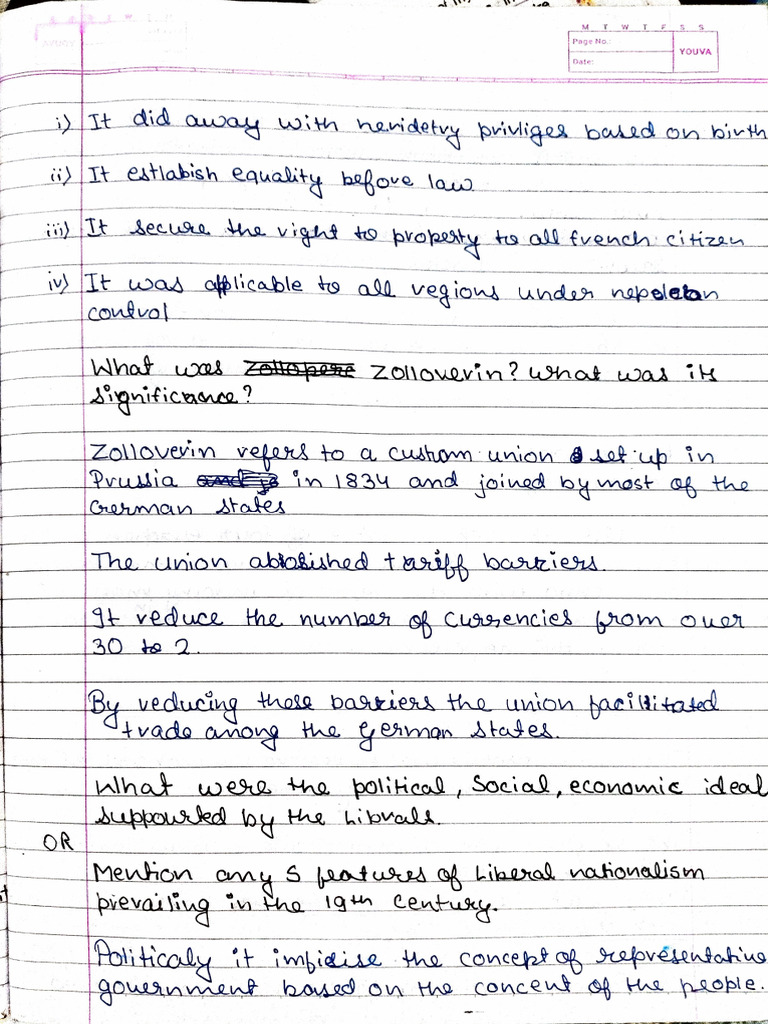 M T W T F S S
Page No.:
YOUVA
Date:
i) It did away with heridetry privliges based on birth
ii) It estlabish equality before law
iii) It secure the right to property to all french citizen
iv) It was applicable to all regions under nepoleon
control
What was Zolloverin? What was its
significance?
Zolloverin refers to a custom union set up in
Prussia in 1834 and joined by most of the
German states
The union abolished tariff barriers.
It reduce the number of currencies from over
30 to 2.
By reducing these barriers the union facilitated
trade among the German states.
What were the political, Social, economic ideal
suppourted by the Librals.
OR
Mention any 5 features of Liberal nationalism
prevailing in the 19th Century.
Politicaly it the concept of representative
government based on the concent of the people.